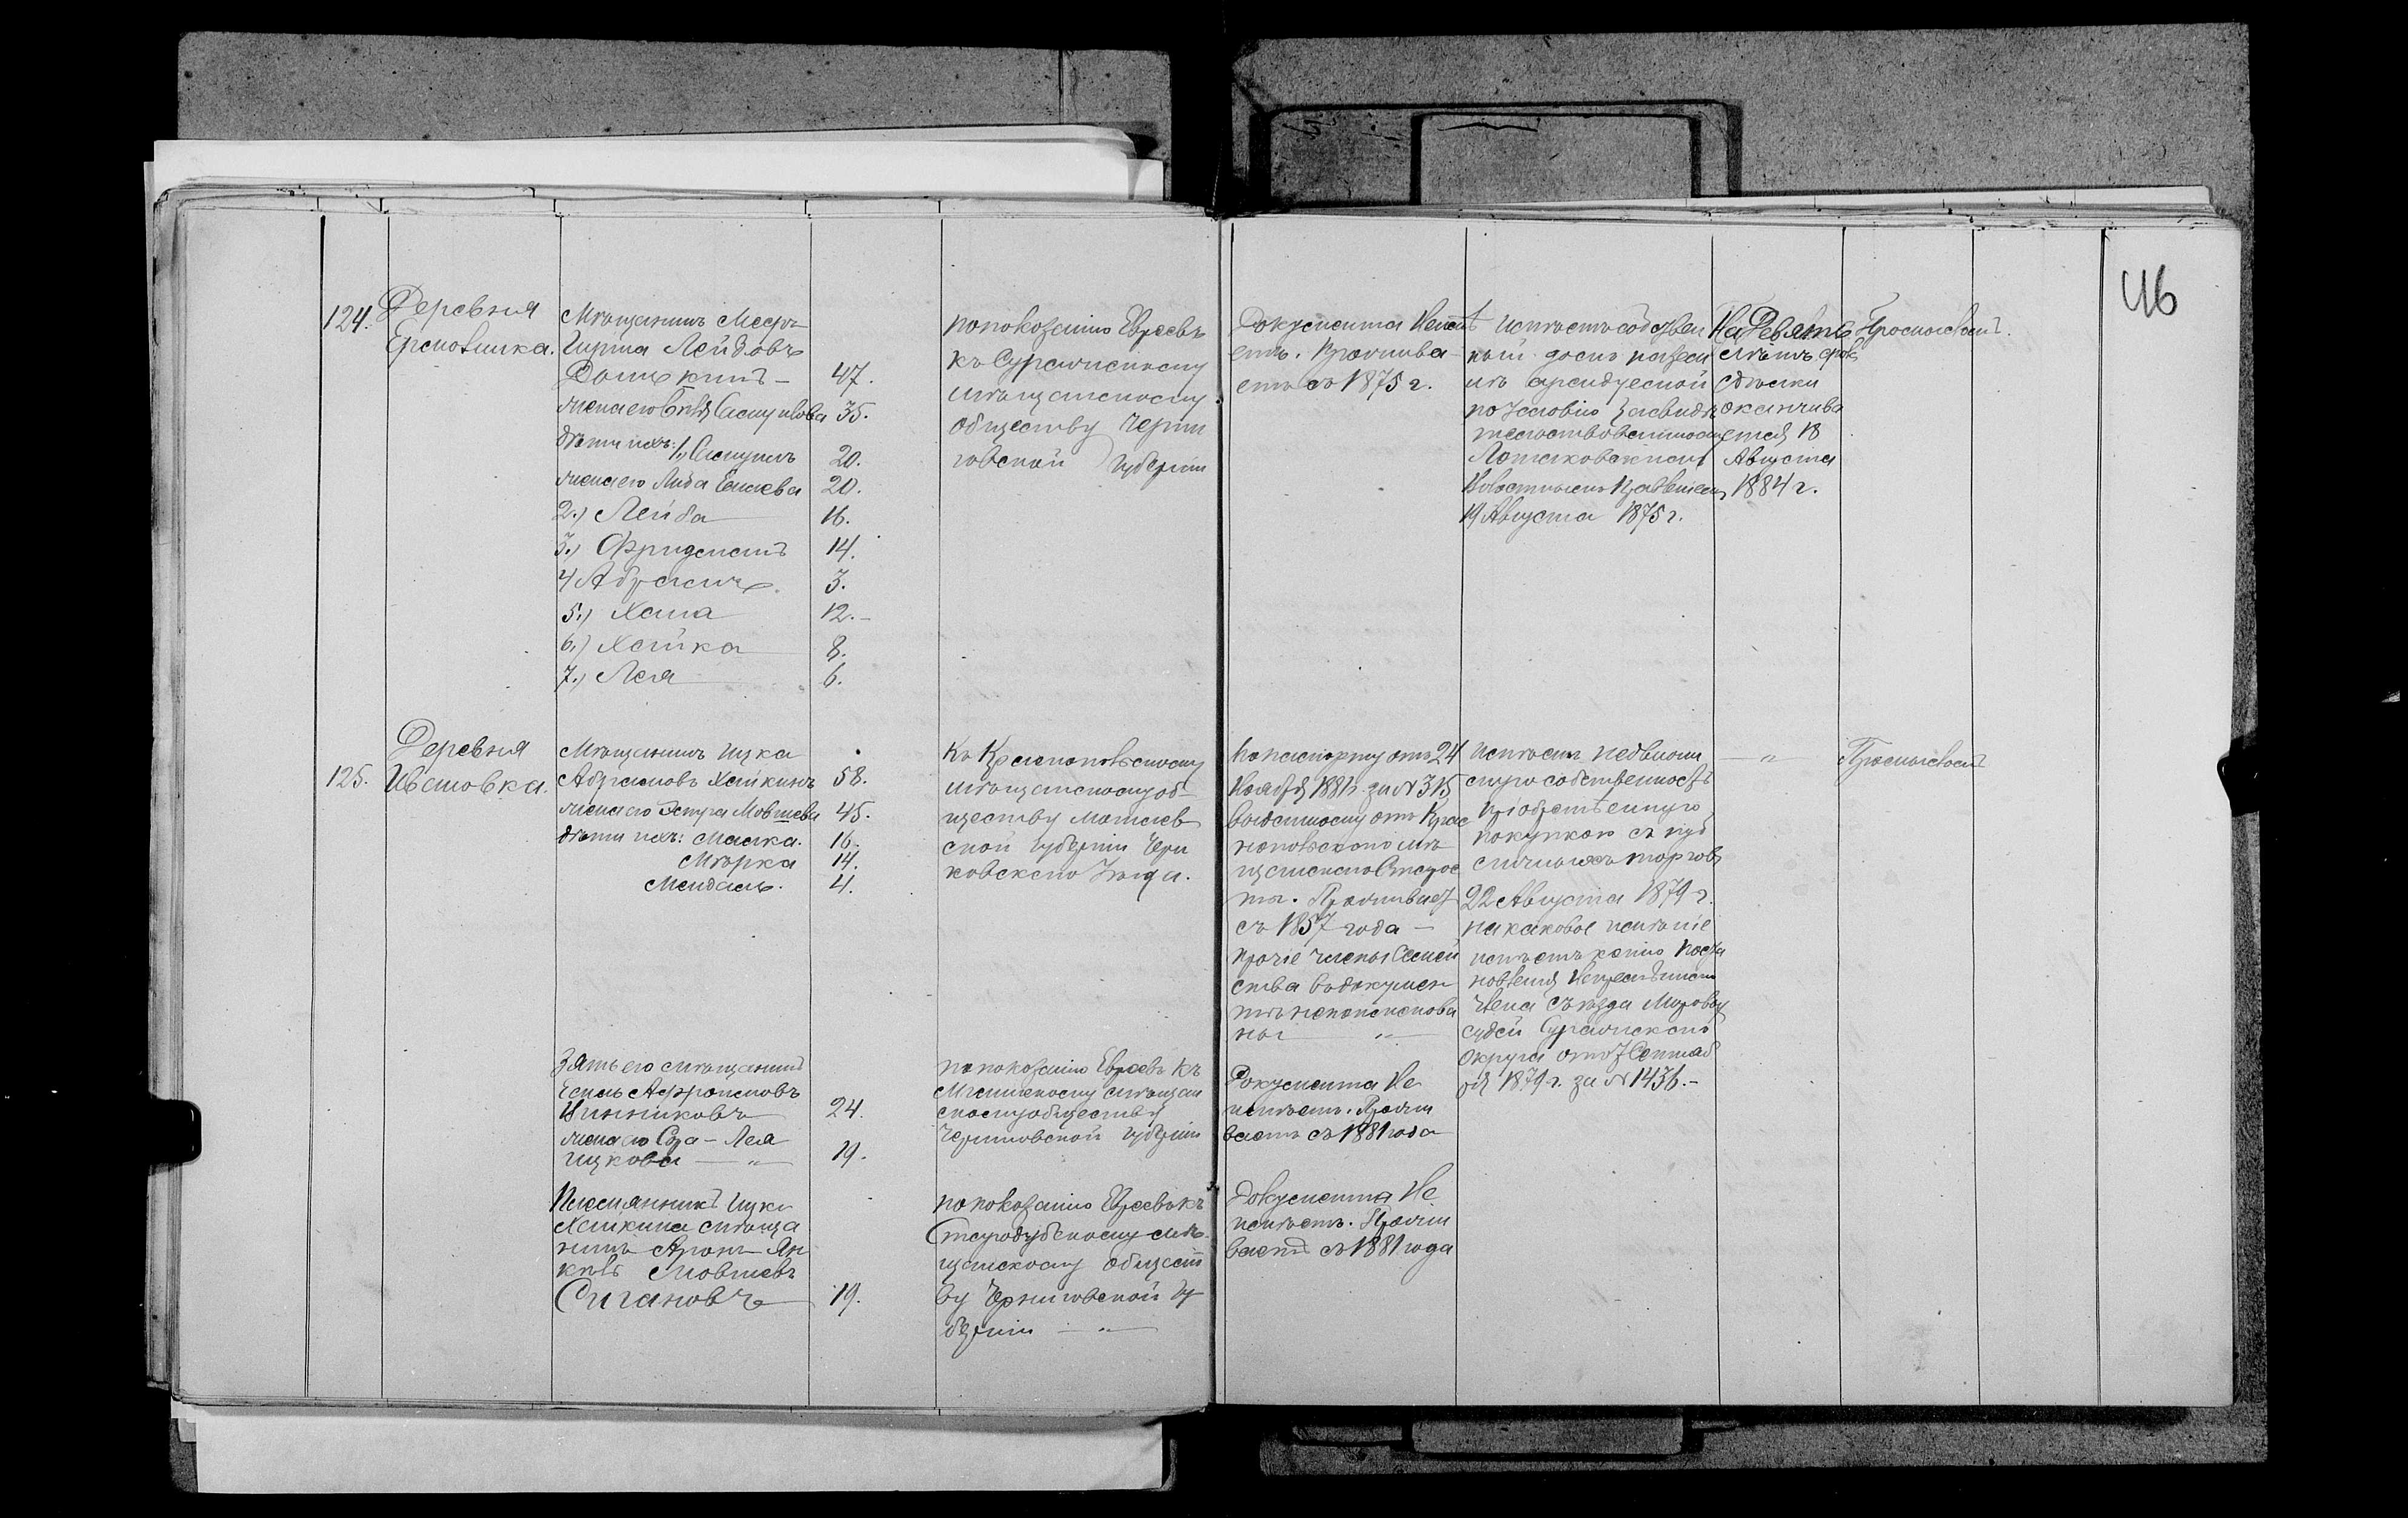 46
124.
Деревня
Ермовшка.
Мѣщанинъ Мееръ
Гирша Лейбовъ
Долицкинъ — 47.
жена его Самуилова 35.
дѣти ихъ: 1., Самуилъ 20.
жена его Либа Елиаева 20.
2.) Лейба 16.
3.) Фридманъ 14.
4 Абрамъ 3.
5.) Хана 12. —
6.) Хайка 8.
7.) Лея 6.
по показанію Евреевъ
къ Суражскому
мѣщанскому
обществу Черни
говской губерніи
Документа Неимѣ
етъ. Прожива
етъ съ 1875 г.
имѣетъ собствен
ный домъ на земл
ѣ арендуемой
по условію засвидѣ
тельствованному
Волостнымъ Правленіемъ
19 Августа 1875 г.
На Девять
лѣтъ срокъ
сдѣлки
оканчива
ется 18
Августа
1884 г.
125.
Деревня
Ивановка.
Мѣщанинъ Ицка
Абрамовъ Хайкинъ 58.
жена его Эстра Мовшева 45.
дѣти ихъ: Малка. 16.
Мѣрка 14.
Мендель. 4.
Къ Краснопольскому
мѣщанскому об-
ществу Могилев
ской губерніи Чери
ковскаго Уѣзда.
по паспорту отъ 24
Ноября 1881 г. за № 315
выданному отъ Крас
нопольскаго мѣ
щанскаго Старос
ты. Проживаетъ
съ 1857 года —
прочіе члены Семей
ства въ докумен
тѣ непоименова
ны — " —
имѣетъ недвижи
мую собственность
пріобрѣтенную
покупкою съ пуб
личныхъ торговъ
22 Августа 1879 г.
на каковое имѣніе
имѣетъ копію Поста
новленія Непремѣннаго
Члена Съѣзда Мировыхъ
судей Суражскаго
Округа отъ 7 Сентяб
ря 1879 г. за № 1436. —
— " —
Зять его мѣщанинъ
Есель Афроимовъ
Винниковъ 24.
жена его Сора - Лея
Ицкова — " — 19.
по показанію Евреевъ къ
Мглинскому мѣщан
скому обществу
Черниговской губерніи
Документа Не
имѣетъ. Прожи
ваетъ съ 1881 года
Племянникъ Ицки
Хайкина мѣща
нинъ Аронъ Ян
кель Мовшевъ
Сигановъ 19.
по показанію Евреевъ къ
Стародубскому мѣ-
щанскому общест
ву Черниговской гу
берніи — " —
Документа Не
имѣетъ. Прожи
ваетъ съ 1881 года